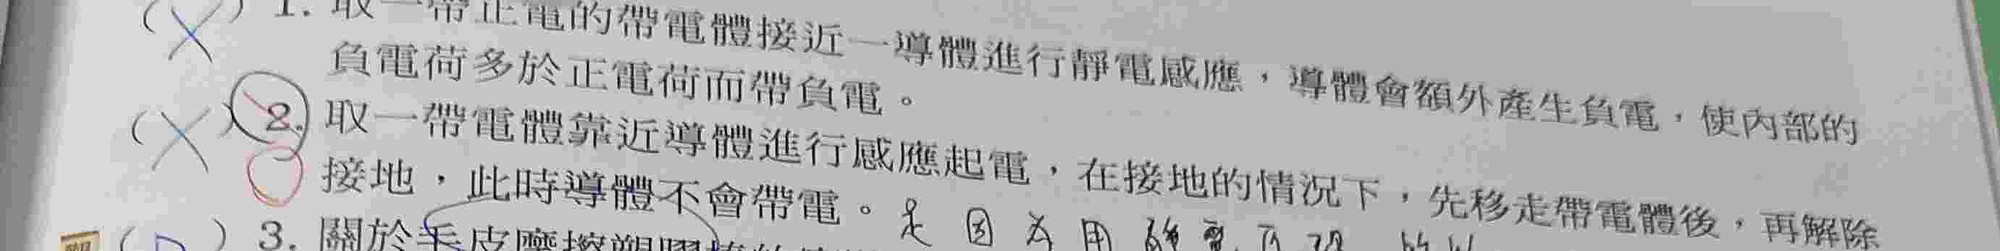 (X) 1. 取一帶正電的帶電體接近一導體進行靜電感應，導體會額外產生負電，使內部的
負電荷多於正電荷而帶負電。
(X) 2. 取一帶電體靠近導體進行感應起電，在接地的情況下，先移走帶電體後，再解除
接地，此時導體不會帶電。是因為用
( ) 3. 關於毛皮摩擦塑膠棒